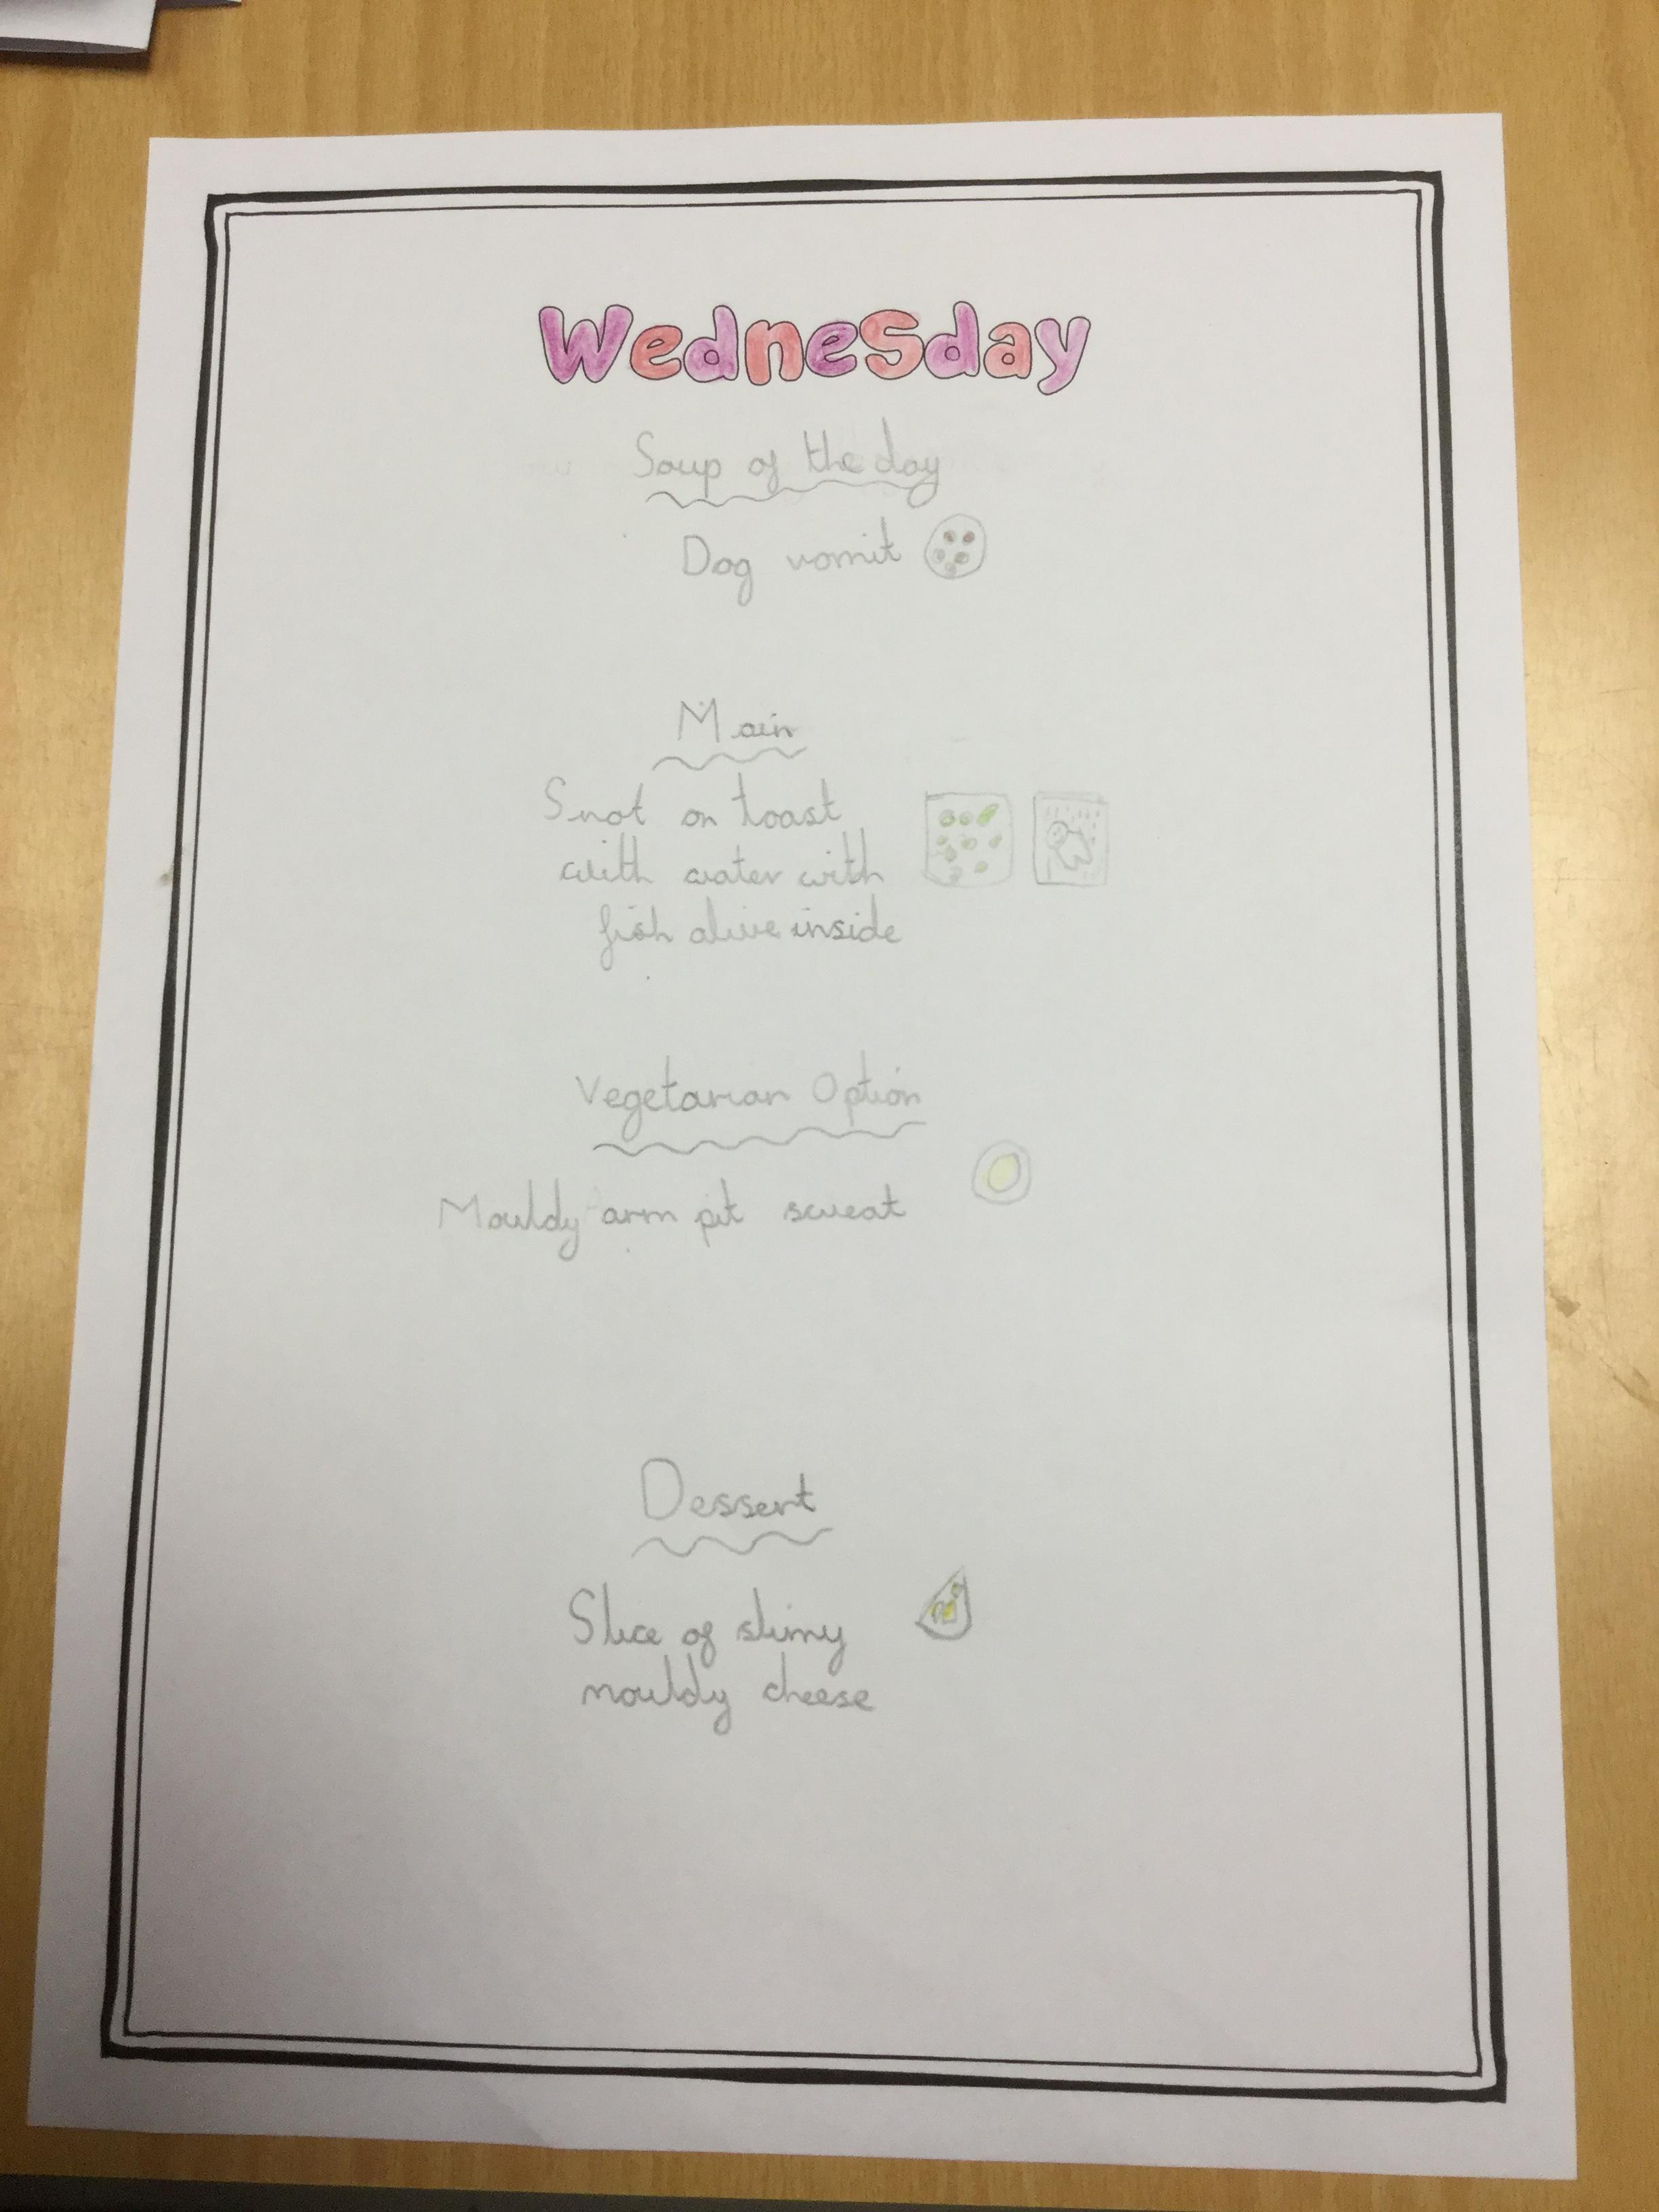 Wednesday
Soup of the day
Dog vomit
Main
Snot on toast
with water with
fish alive inside
Vegetarian Option
Mouldy arm pit sweat
Dessert
Slice of slimy
mouldy cheese